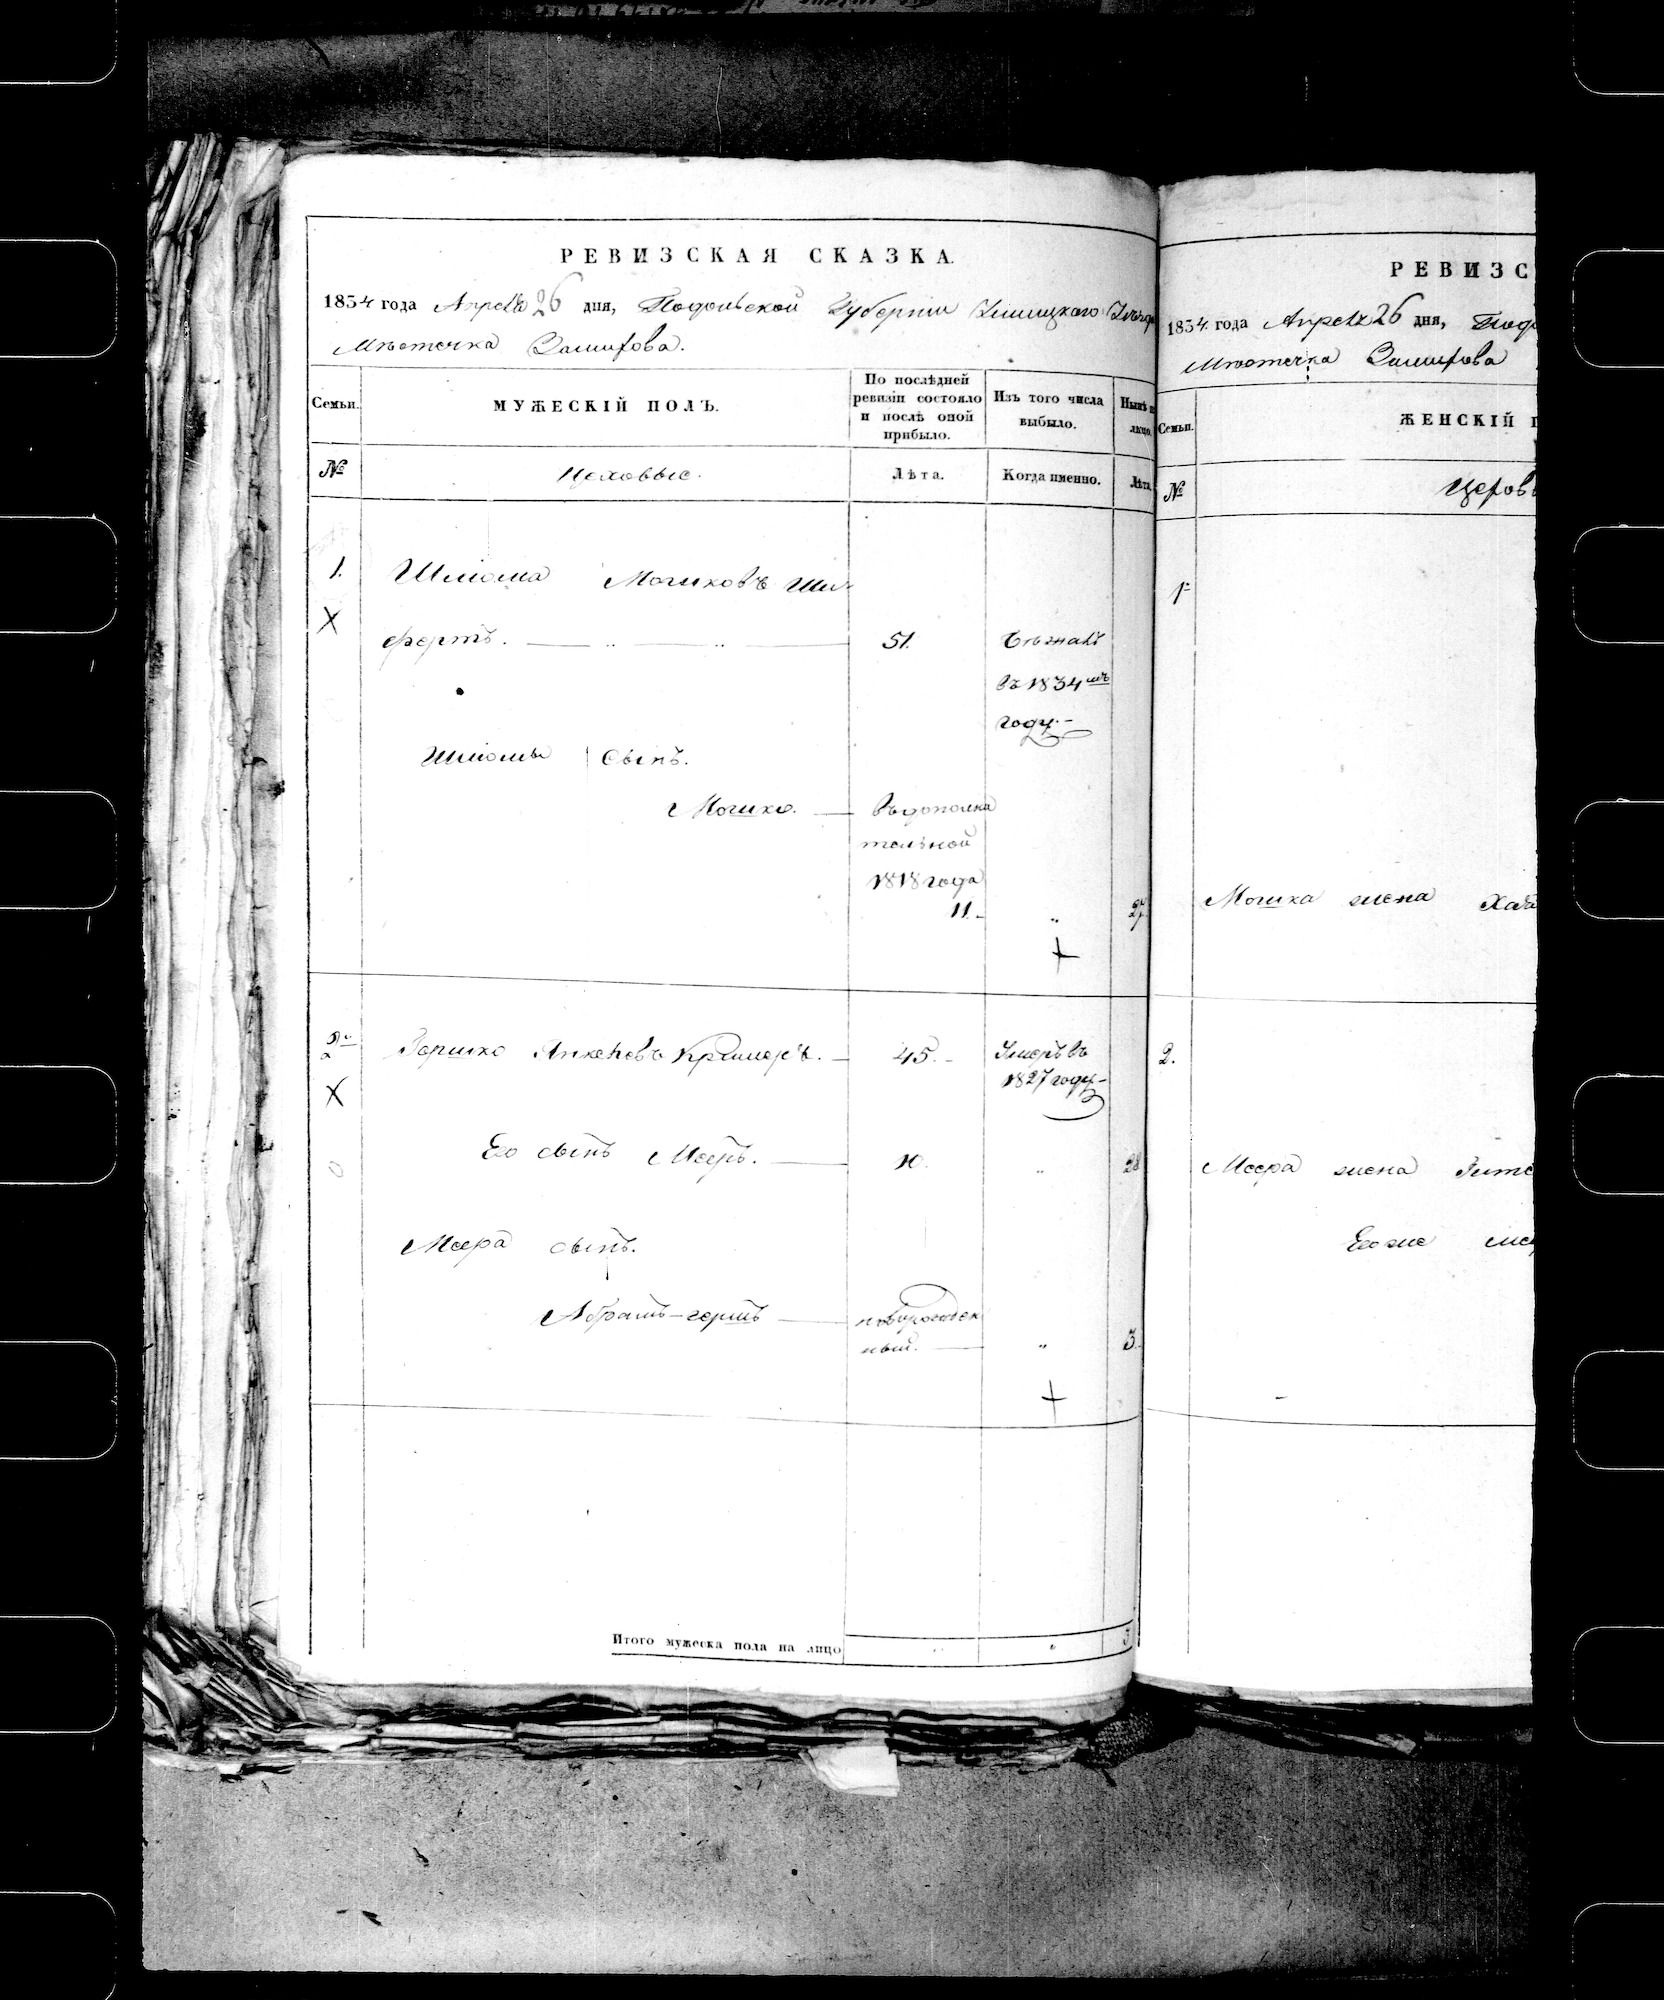 РЕВИЗСКАЯ СКАЗКА.
1834 года Апреля 26 дня, Подольской Губернии Ушицкого Уѣзда
Мѣстечка Замихова.
Семьи.
МУЖЕСКІЙ ПОЛЪ.
По послѣдней
ревизіи состояло
и послѣ оной
прибыло.
Изъ того числа
выбыло.
Нынѣ на
лицо.
№
Цеховые.
Лѣта.
Когда именно.
Лѣта.
1.
Шліома Мошковъ Ши-
фертъ.
51.
Бѣжалъ
въ 1834мъ
году.
Шліомы сынъ.
Мошко.
въ дополни
тельной
1818 года
11.
27.
2.
Гершко Крамеръ.
45.
Умеръ въ
1827 году
Его сынъ Мееръ.
10.
28
Меера сынъ.
Абрамъ-гершъ
новорожден
ный.
3.
Итого мужеска пола на лицо
3
РЕВИЗС
1834 года Апреля 26 дня, Подо
Мѣстечка Замихова
Семьи.
ЖЕНСКІЙ П
№
Цехов
1
Мошка жена Хая
2.
Меера жена
Его же